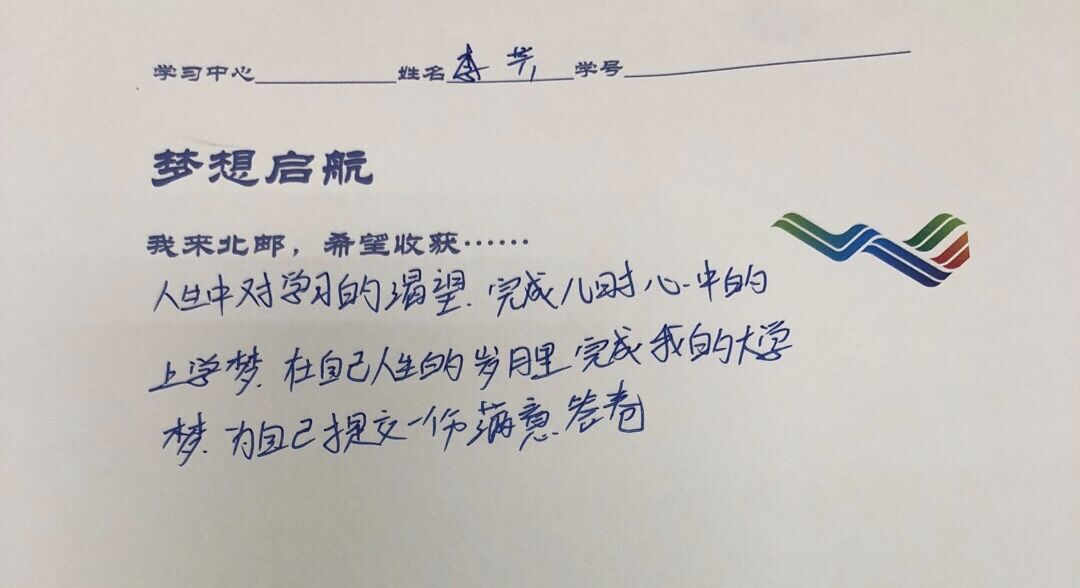 学习中心 姓名 李 学号
梦想启航
我来北邮，希望收获……
人生中对学习的渴望.完成儿时心中的
上学梦.在自己人生的岁月里完成我的大学
梦.为自己提交一份满意答卷